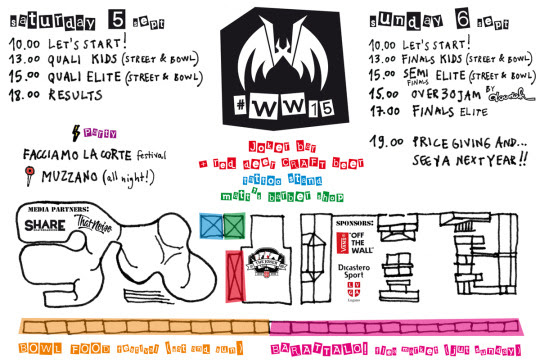 saturday 5 sept
10.00 LET'S START!
13.00 QUALI KIDS (STREET & BOWL)
15.00 QUALI ELITE (STREET & BOWL)
18.00 RESULTS
Party
FACCIAMO LA CORTE festival
MUZZANO (all night!)
#WW15
Joker bar
+ red deer CRAFT beer
tattoo stand
matt's barber shop
sunday 6 sept
10.00 LET'S START!
13.00 FINALS KIDS (STREET & BOWL)
15.00 SEMI FINALS ELITE (STREET & BOWL)
15.00 OVER 30 JAM BY
17.00 FINALS ELITE
19.00 PRICE GIVING AND...
SEE YA NEXT YEAR!!
MEDIA PARTNERS:
SHARE
SPONSORS:
VANS "OFF
THE
WALL"
Dicastero
Sport
LVGA
Lugano
BOWL FOOD festival (sat and sun)
BARATTALO! flea market (just sunday)